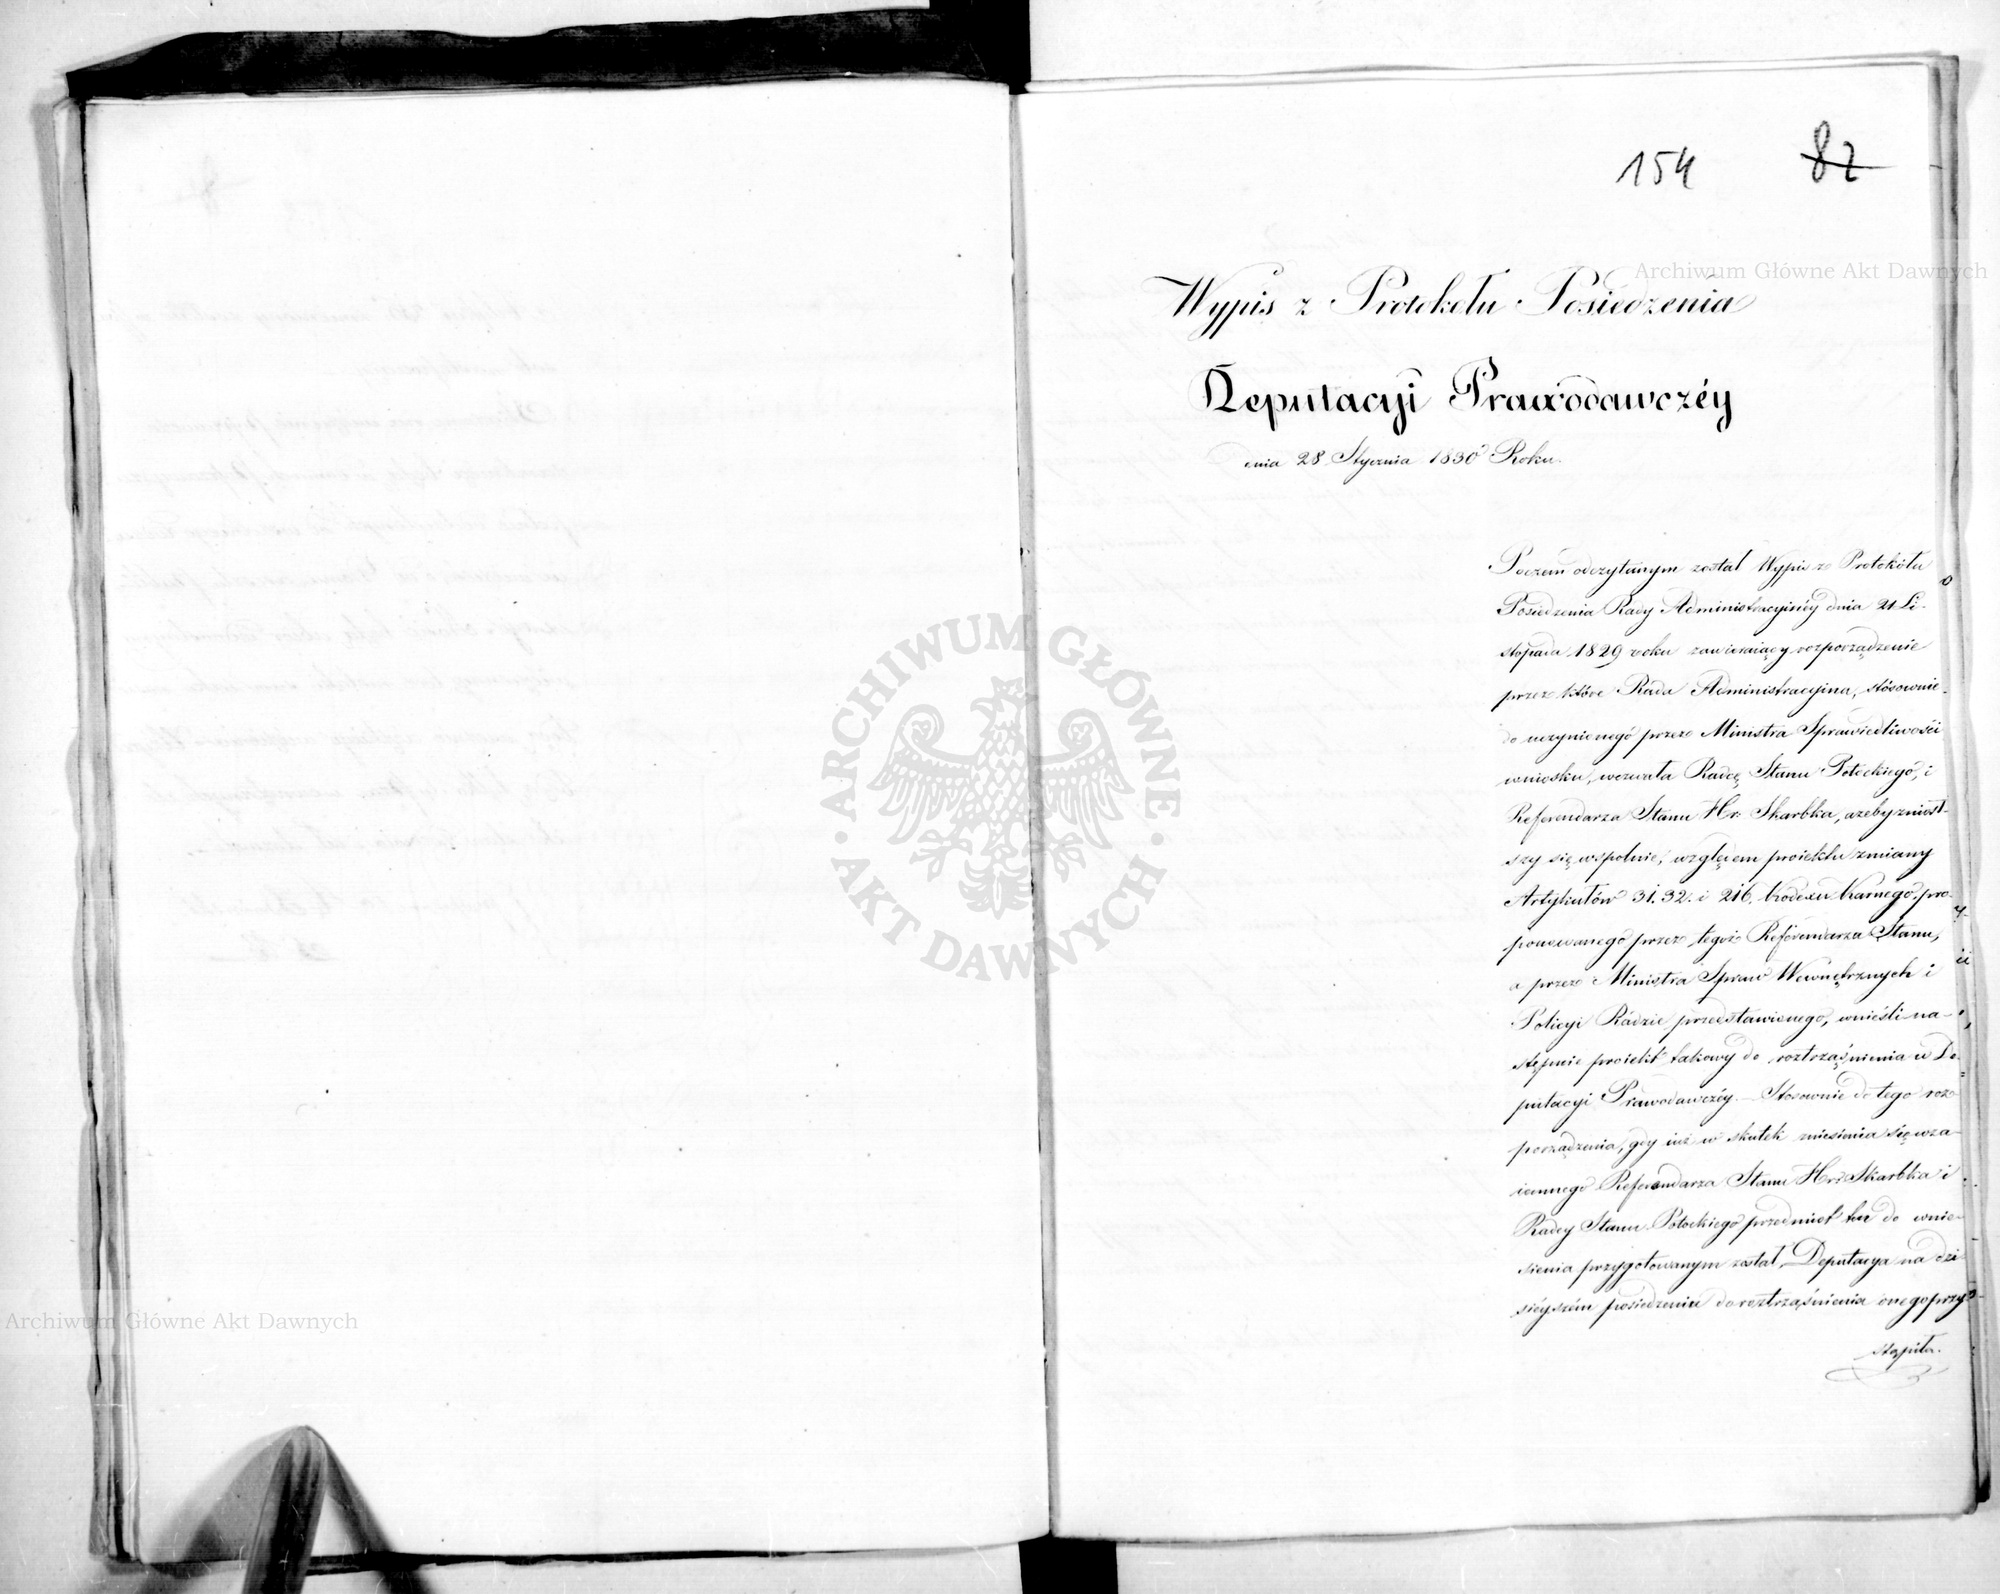 154 82
Archiwum Główne Akt Dawnych
Wypis z Protokołu Posiedzenia
Deputacyi Prawodawczéy
dnia 28 Stycznia 1830 Roku.
Poczem odczytanym został Wypis z Protokółu
Posiedzenia Rady Administracyinéy dnia 21 Li-
stopada 1829 roku zawieraiący rozporządzenie
przez które Rada Administracyina, stósownie
do uczynionego przez Ministra Sprawiedliwości
wniosku, wezwała Radcę Stanu Potockiego, i
Referendarza Stanu Hr: Skarbka, ażeby zniósł-
szy się wspolnie, względem proiektu zmiany
Artykułów 31. 32. i 216. kodexu karnego, pro-
ponowanego przez tegoż Referendarza Stanu,
a przez Ministra Spraw Wewnętrznych i
Policyi Radzie przedstawionego, wnieśli na-
stępnie proiekt takowy do roztrząśnienia w De-
putacyi Prawodawczéy. — Stosownie do tego roz-
porządzenia, gdy iuż w skutek zniesienia się wza-
iemnego Referendarza Stanu Hr: Skarbka i
Radcy Stanu Potockiego przedmiot ten do wnie-
sienia przygotowanym został, Deputacya na dzi-
siéyszém posiedzeniu do roztrząśnienia onego przy-
stąpiła.
ARCHIWUM GŁÓWNE · AKT DAWNYCH ·
Archiwum Główne Akt Dawnych